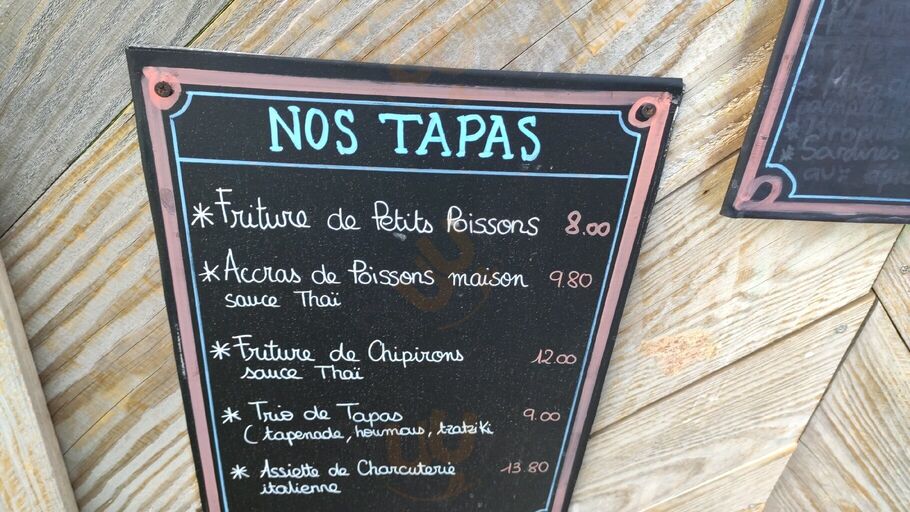 NOS TAPAS
* Friture de Petits Poissons 8.00
* Accras de Poissons maison 9.80
sauce Thaï
* Friture de Chipirons 12.00
sauce Thaï
* Trio de Tapas 9.00
( tapenade, houmous, tzatziki
* Assiette de Charcuterie 13.80
italienne
* Sardines
aux